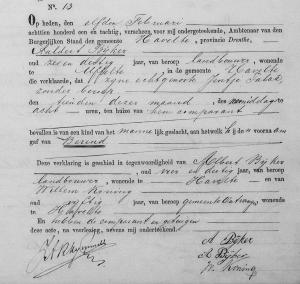 No. 13
Op heden, den elfden Februari
achttien honderd een en tachtig, verscheen voor mij ondergeteekende, Ambtenaar van den
Burgerlijken Stand der gemeente Havelte, provincie Drenthe,
Bijker
oud zeven dertig jaar, van beroep landbouwer, wonende
te in de gemeente Havelte
die verklaarde, dat zijne echtgenoote Jentje
zonder beroep
den tienden dezer maand, des middags te
acht uren, ten huize van hem comparant
bevallen is van een kind van het mannelijk geslacht, aan hetwelk hij den voornaam
gaf van Berend
Deze verklaring is geschied in tegenwoordigheid van Albert Bijker
oud vier en dertig jaar, van beroep
landbouwer, wonende te Havelte en
Willem Koning
oud vijftig jaar, van beroep gemeente
wonende te Havelte
En hebben de comparant en getuigen
deze acte, na voorlezing, nevens mij onderteekend.
A Bijker
A Bijker
W. Koning